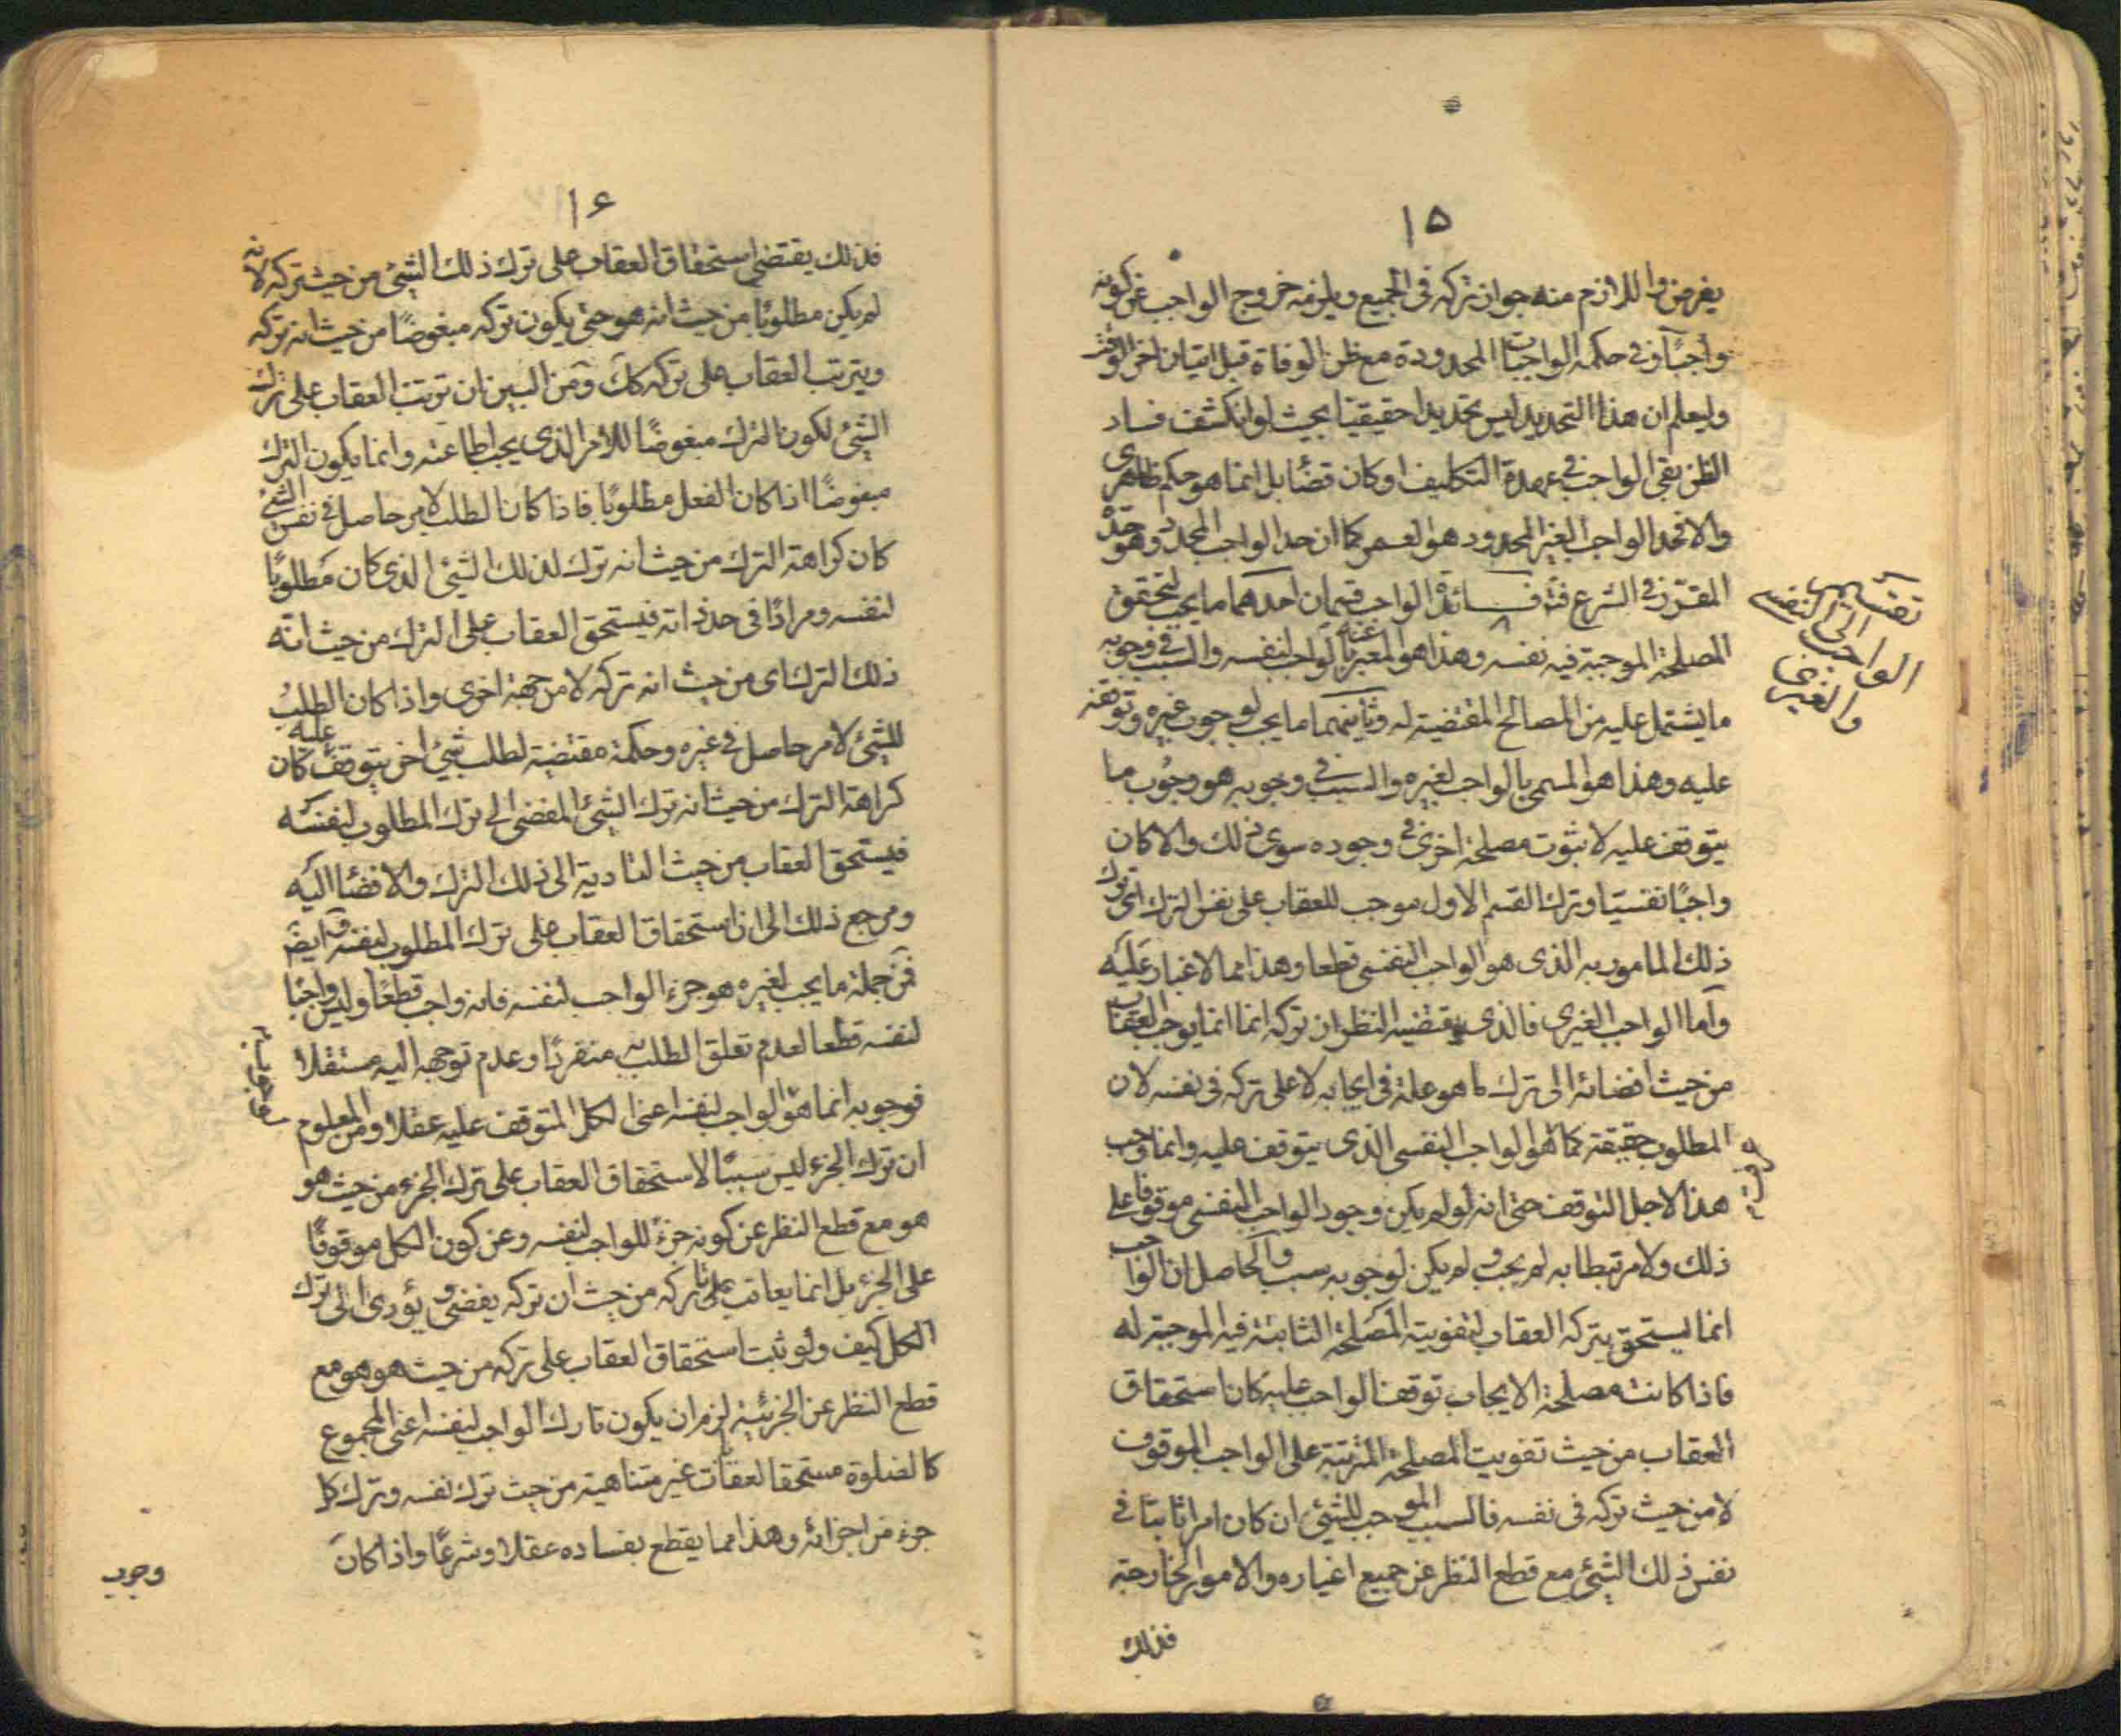 ۱۵
يفرض واللازم منه جواز تركه في الجميع ويلزمه خروج الواجب عن كونه
واجبًا وفي حكمه الواجبات المحدودة مع ظن الوفاة قبل اتيان اخر الوقت
وليعلم ان هذا التحديد ليس تحديدا حقيقيّا بحيث لو انكشف فساد
الظن بقى الواجب في عهدة التكليف او كان قضائا بل انما هو حكم ظاهرى
والا فحد الواجب الغير المحدود هو العمر كما ان حد الواجب المحدد وهو حدّه
المقرّر في الشرع فائدة الواجب قسمان احدهما ما يجب لتحقق
المصلحة الموجبة فيه نفسه وهذا هو المعبر عنه بالواجب لنفسه والسبب في وجوبه
ما يشتمل عليه من المصالح المقتضية له وثانيهما ما يجب لوجوب غيره وتوقفه
عليه وهذا هو المسمى بالواجب لغيره والسبب في وجوبه هو وجوب ما
يتوقف عليه لا ثبوت مصلحة اخرى في وجوده سوى ذلك والا كان
واجبًا نفسيّا وترك القسم الاول موجب للعقاب على نفس الترك اى ترك
ذلك المامور به الذى هو الواجب النفسى قطعا وهذا مما لا غبار عليه
وامّا الواجب الغيرى فالذى يقتضيه النظر ان تركه انما انما يوجب العقاب
من حيث افضائه الى ترك ما هو علة في ايجابه لا على تركه في نفسه لان
المطلوب حقيقة كما هو الواجب النفسى الذى يتوقف عليه وانما وجب
هذا لاجل التوقف حتى انه لو لم يكن وجود الواجب النفسى موقوفا على
ذلك ولا مرتبطا به لم يجب ولم يكن لوجوبه سبب والحاصل ان الواجب
انما يستحق بتركه العقاب لتفويته المصلحة الثابتة فيه الموجبة له
فاذا كانت مصلحة الايجاب توقف الواجب عليه كان استحقاق
العقاب من حيث تفويت المصلحة المترتبة على الواجب الموقوف
لا من حيث تركه في نفسه فالسبب الموجب للشئ ان كان امرا ثابتا في
نفس ذلك الشئ مع قطع النظر عن جميع اغياره والامور الخارجة
فذلك
تقسيم
الواجب الى النفسى
والغيرى
۱۶
فذلك يقتضى استحقاق العقاب على ترك ذلك الشئ من حيث تركه لانه
لم يكن مطلوبًا من حيث انه هو حتى يكون تركه مبغوضًا من حيث انه تركه
ويترتب العقاب على تركه كك ومن البين ان ترتب العقاب على ترك
الشئ لكون الترك مبغوضًا للآمر الذى يجب اطاعته وانما يكون الترك
مبغوضًا اذا كان الفعل مطلوبًا فاذا كان الطلب لامر حاصل في نفس الشئ
كان كراهة الترك من حيث انه ترك لذلك الشئ الذى كان مطلوبًا
لنفسه ومرادًا في حد ذاته فيستحق العقاب على الترك من حيث انّه
ذلك الترك اى من حيث انه تركه لا من جهة اخرى واذا كان الطلب
للشئ لامر حاصل في غيره وحكمة مقتضية لطلب شئ اخر يتوقف عليه كان
كراهة الترك من حيث انه ترك الشئ المفضى الى ترك المطلوب لنفسه
فيستحق العقاب من حيث التادية الى ذلك الترك والافضاء اليه
ومرجع ذلك الى ان استحقاق العقاب على ترك المطلوب لنفسه وايضَ
فمن جملة ما يجب لغيره هو جزء الواجب لنفسه فانه واجب قطعًا وليس واجبًا
لنفسه قطعا لعدم تعلق الطلب به منفردًا وعدم توجهه اليه مستقلا
فوجوبه انما هو الواجب لنفسه اعنى الكل المتوقف عليه عقلا ومن المعلوم
ان ترك الجزء ليس سببًا لاستحقاق العقاب على ترك الجزء من حيث هو
هو مع قطع النظر عن كونه جزء للواجب لنفسه وعن كون الكل موقوفًا
على الجزء بل انما يعاقب على تاركه من حيث ان تركه يفضى ويؤدى الى ترك
الكل كيف ولو ثبت استحقاق العقاب على تركه من حيث هو هو مع
قطع النظر عن الجزئية لزم ان يكون تارك الواجب لنفسه اعنى المجموع
كالصلوة مستحقا لعقابات غير متناهية من حيث ترك نفسه وترك كل
جزء من اجزائه وهذا مما يقطع بفساده عقلا وشرعًا واذا كان
وجوب